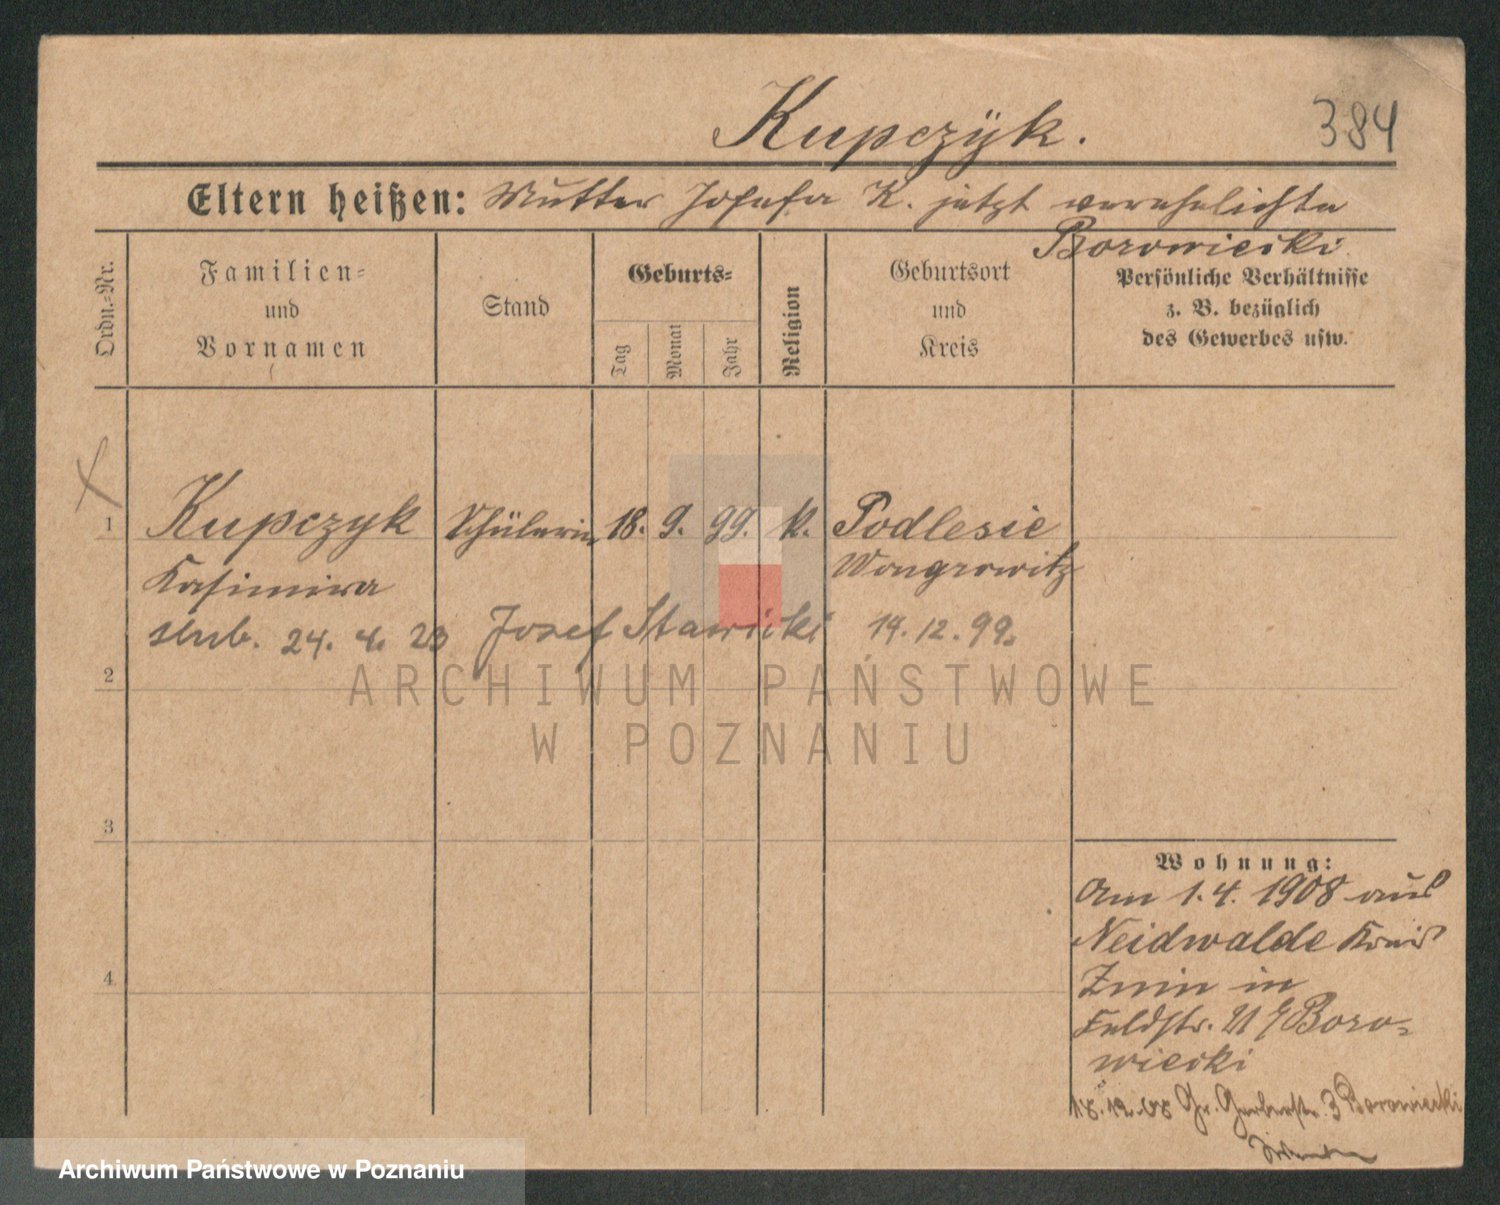 Kupczÿk.
384
Eltern heißen: Mutter Josefa K. jetzt verehelichte
Borowiecki.
Ordn.-Nr.
Familien-
und
Vornamen
Stand
Geburts-
Tag
Monat
Jahr
Religion
Geburtsort
und
Kreis
Persönliche Verhältnisse
z. B. bezüglich
des Gewerbes usw.
1 Kupczyk Schülerin 18. 9. 99. k. Podlesie
Kasimira Wongrowitz
ślub. 24. 4. 23 Josef Stawicki 14.12.99.
2
3
4
Wohnung:
Am 1.4. 1908 aus
Neidwalde Kreis
Znin in
Feldstr. 21 Boro-
wiecki
18.12.08 Gr. Gerberstr. 3 Borowiecki
ARCHIWUM PAŃSTWOWE
W POZNANIU
Archiwum Państwowe w Poznaniu